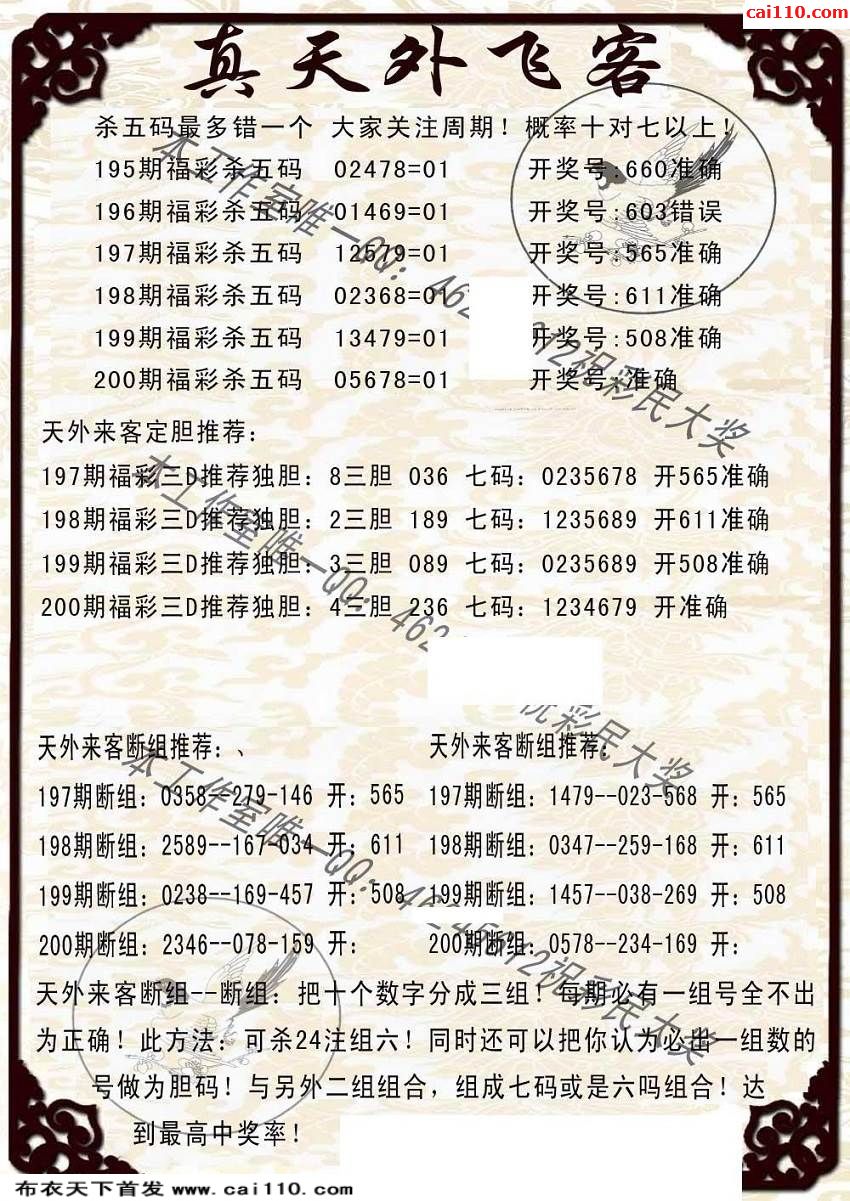 cai110.com
真天外飞客
杀五码最多错一个 大家关注周期！概率十对七以上！
195期福彩杀五码 02478=01 开奖号:660准确
196期福彩杀五码 01469=01 开奖号:603错误
197期福彩杀五码 12579=01 开奖号:565准确
198期福彩杀五码 02368=01 开奖号:611准确
199期福彩杀五码 13479=01 开奖号:508准确
200期福彩杀五码 05678=01 开奖号:准确
天外来客定胆推荐：
197期福彩三D推荐独胆：8三胆 036 七码：0235678 开565准确
198期福彩三D推荐独胆：2三胆 189 七码：1235689 开611准确
199期福彩三D推荐独胆：3三胆 089 七码：0235689 开508准确
200期福彩三D推荐独胆：4三胆 236 七码：1234679 开准确
天外来客断组推荐：、
197期断组：0358--279-146 开：565
198期断组：2589--167-034 开：611
199期断组：0238--169-457 开：508
200期断组：2346--078-159 开：
天外来客断组推荐：
197期断组：1479--023-568 开：565
198期断组：0347--259-168 开：611
199期断组：1457--038-269 开：508
200期断组：0578--234-169 开：
天外来客断组--断组：把十个数字分成三组！每期必有一组号全不出
为正确！此方法：可杀24注组六！同时还可以把你认为必出一组数的
号做为胆码！与另外二组组合，组成七码或是六吗组合！达
到最高中奖率！
本工作室唯一QQ：462
12祝彩民大奖
本工作室唯一QQ：462
祝彩民大奖
本工作室唯一QQ：46245612祝彩民大奖
布衣天下首发 www.cai110.com